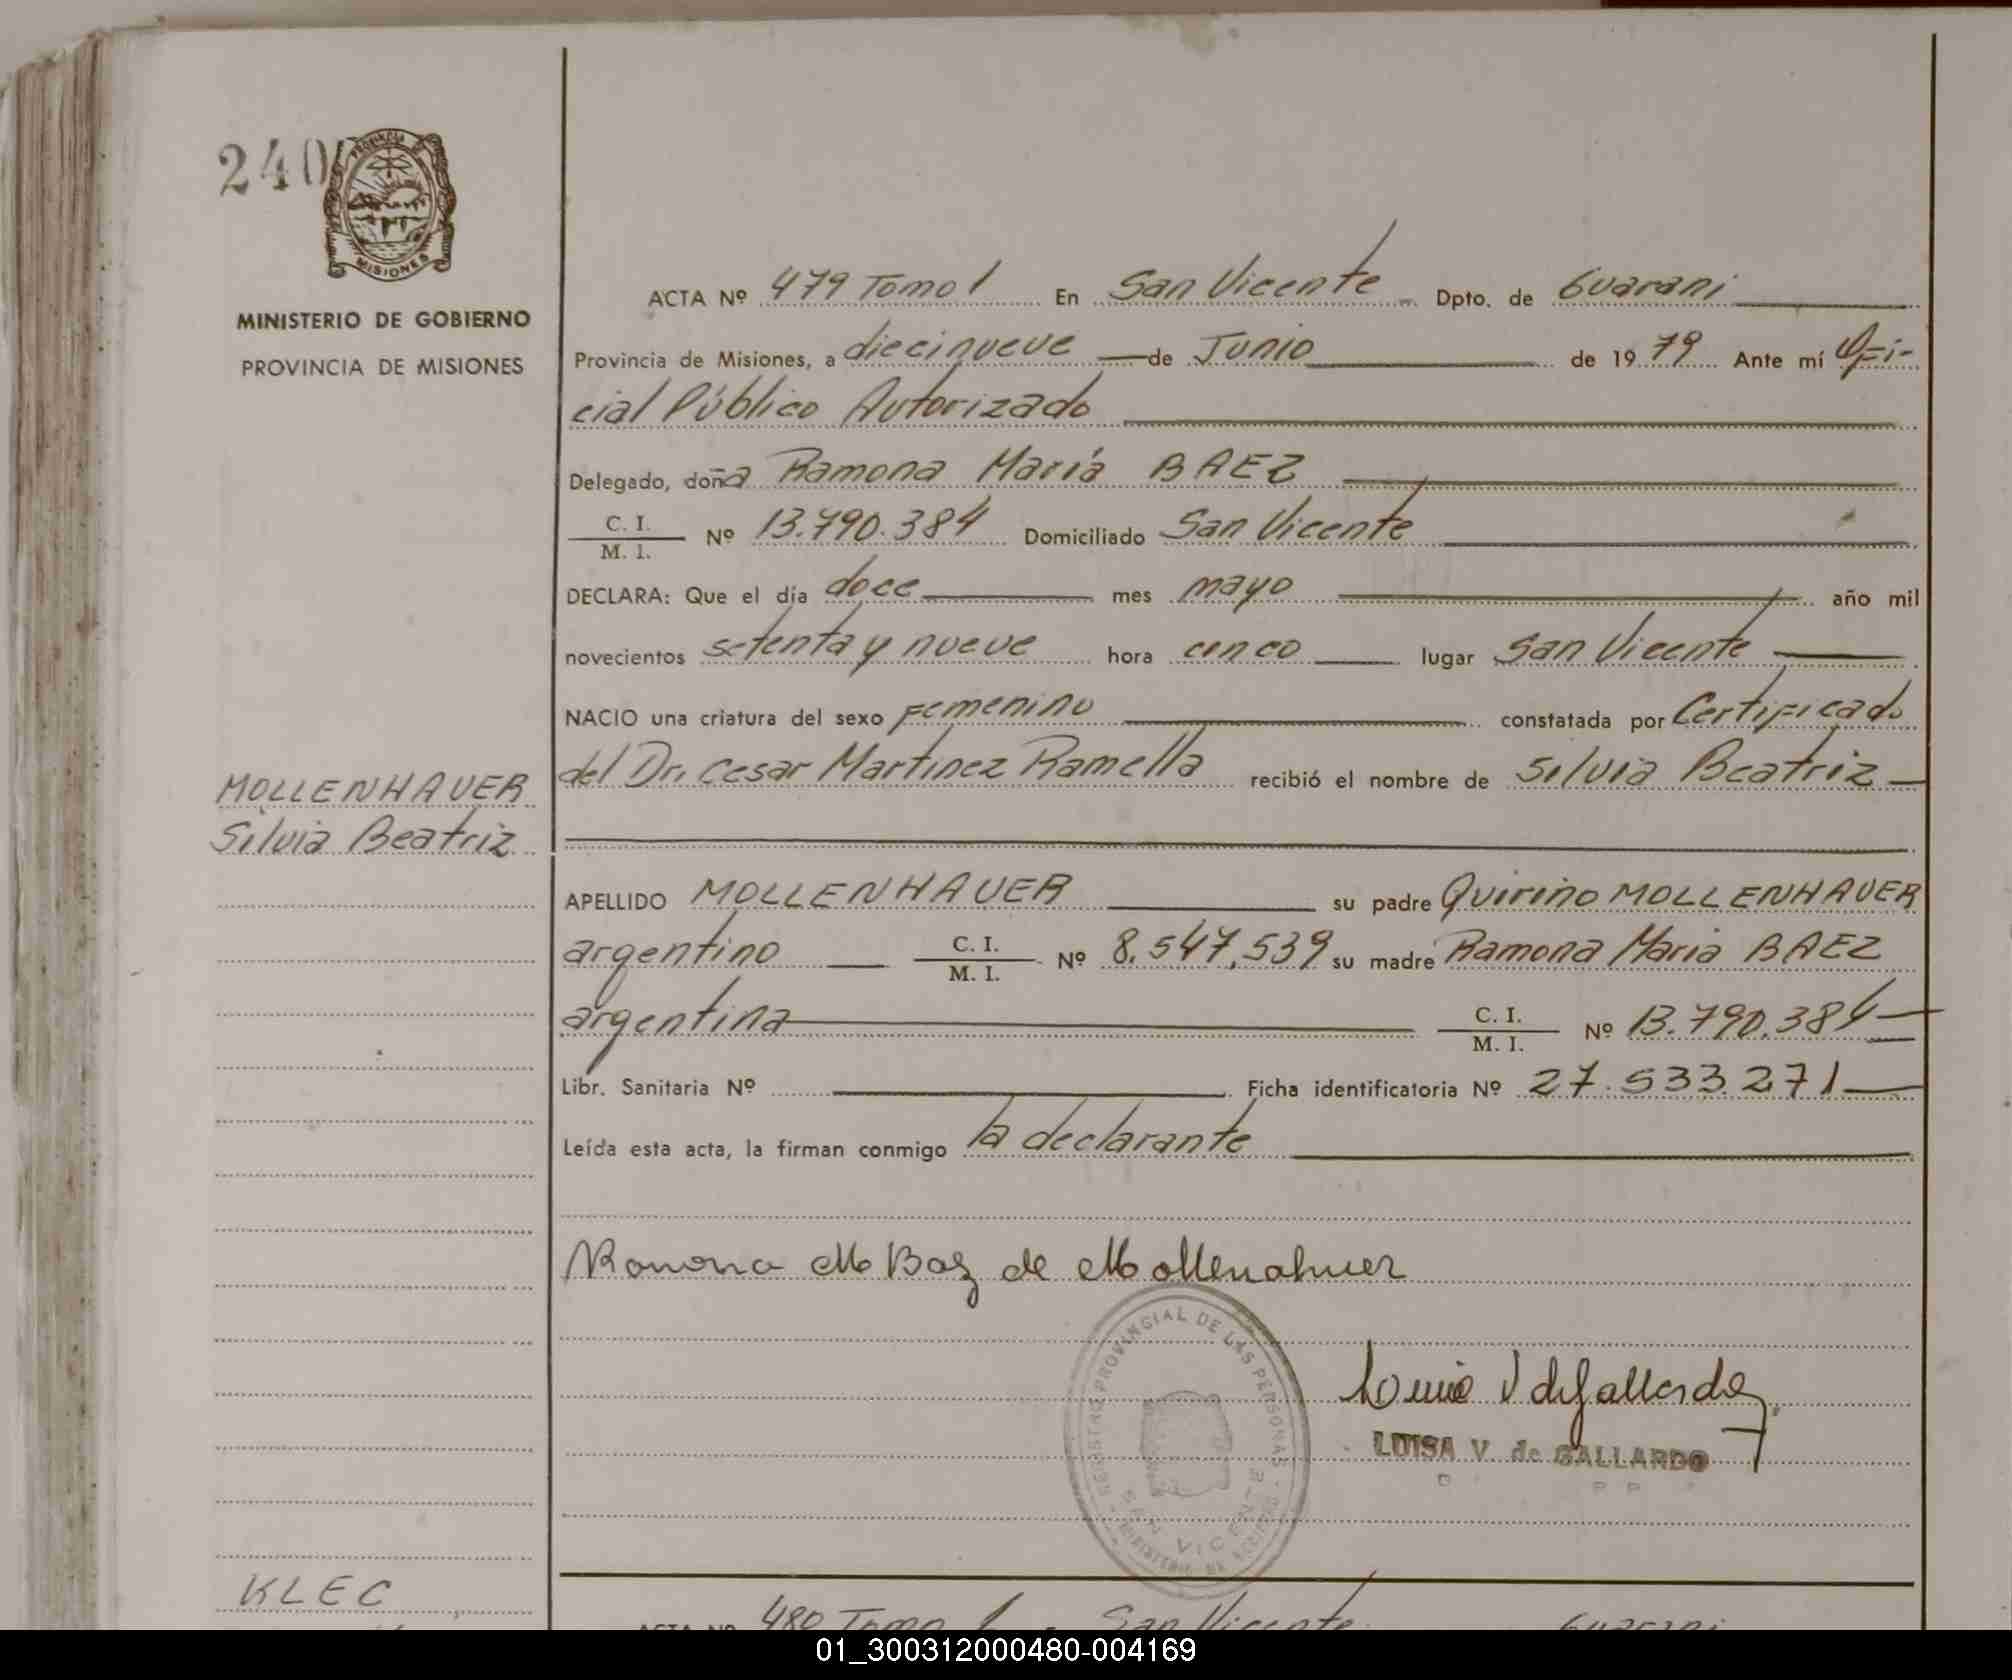 240
PROVINCIA DE
MISIONES
MINISTERIO DE GOBIERNO
PROVINCIA DE MISIONES
ACTA Nº 479 Tomo 1 En San Vicente Dpto. de Guarani
Provincia de Misiones, a diecinueve de Junio de 1979 Ante mí Ofi-
cial Público Autorizado
Delegado, doña Ramona María BAEZ
C. I.
M. I. Nº 13.790.384 Domiciliado San Vicente
DECLARA: Que el día doce mes mayo año mil
novecientos setenta y nueve hora cinco lugar San Vicente
NACIO una criatura del sexo Femenino constatada por Certificado
del Dr. Cesar Martinez Ramella recibió el nombre de Silvia Beatriz
MOLLENHAUER
Silvia Beatriz
APELLIDO MOLLENHAUER su padre Quirino MOLLENHAUER
argentino C. I.
M. I. Nº 8.547.539 su madre Ramona Maria BAEZ
argentina C. I.
M. I. Nº 13.790.384
Libr. Sanitaria Nº Ficha identificatoria Nº 27.533.271
Leída esta acta, la firman conmigo la declarante
Ramona M Baz de Mollenahuer
REGISTRO PROVINCIAL DE LAS PERSONAS
SAN VICENTE
MINISTERIO DE GOBIERNO
LUISA V. de GALLARDO
KLEC
ACTA Nº 480 Tomo 1 San Vicente Guarani
01_300312000480-004169